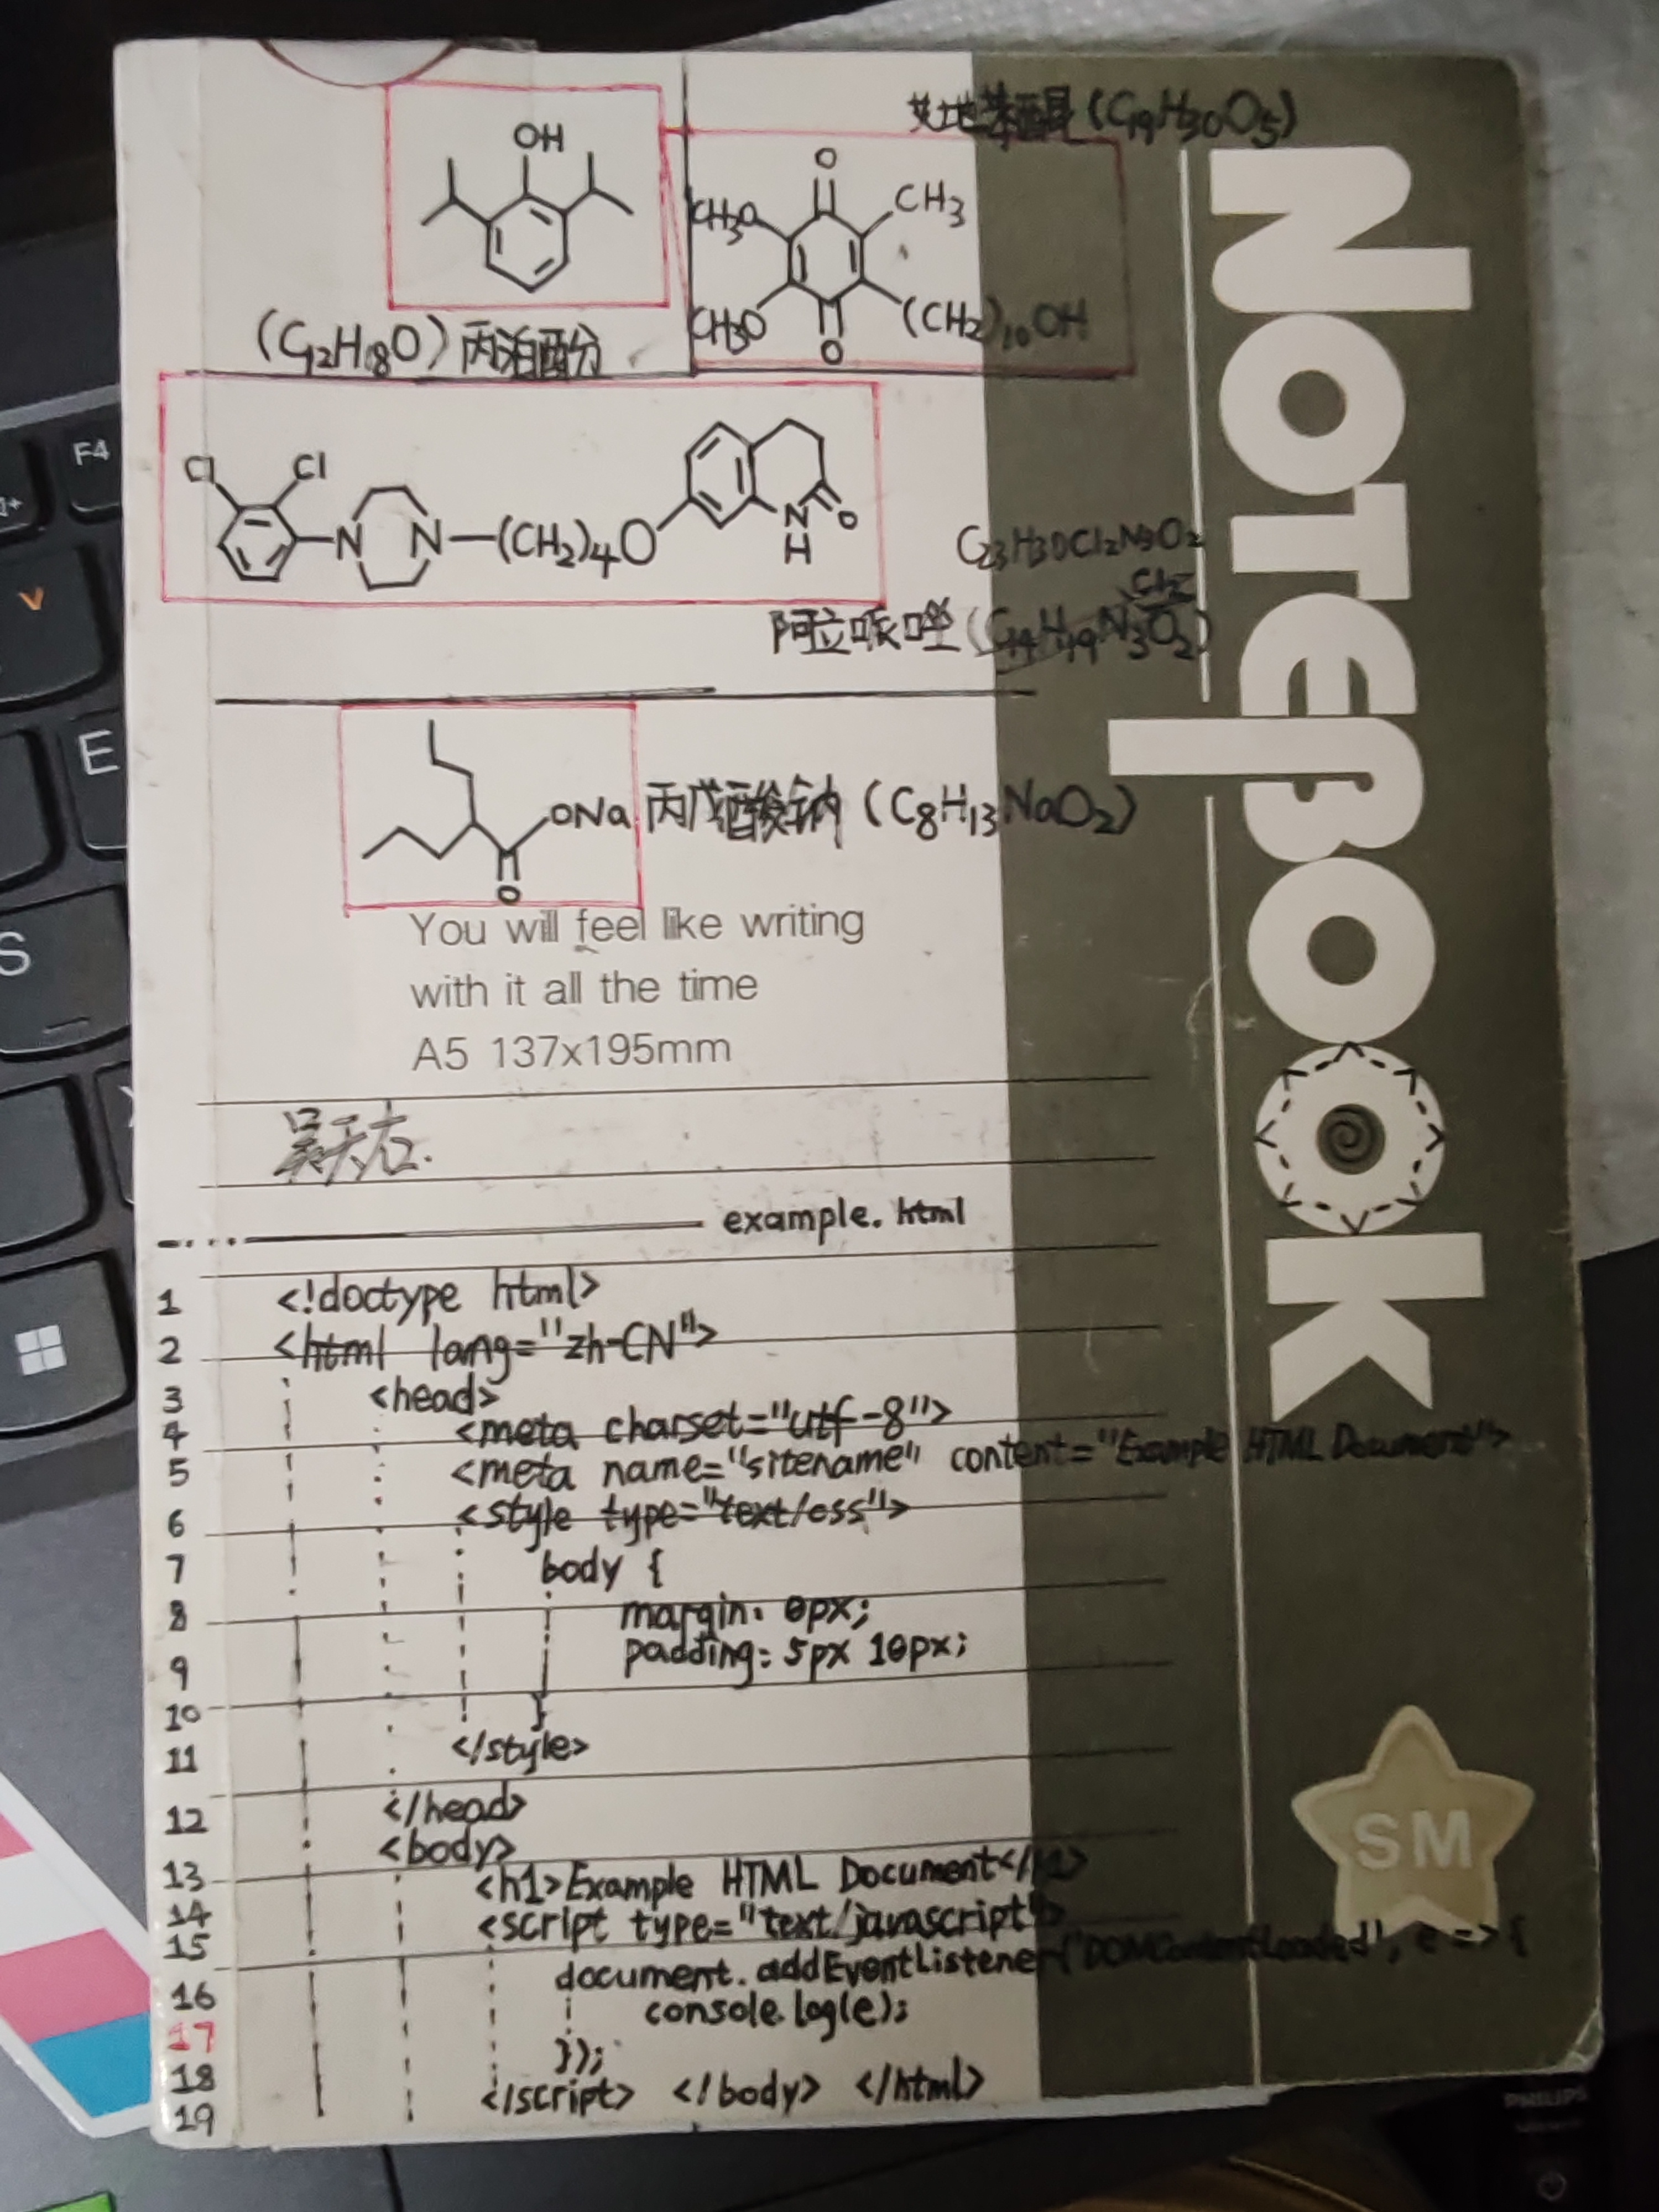 艾地苯醌(C19H30O5)
OH
O
CH3O
CH3
CH3O
(CH2)10OH
O
(C12H18O)丙泊酚
Cl
Cl
N
N
(CH2)4O
N
H
O
C23H30Cl2N3O2
Cl2
阿立哌唑(C14H19N3O2)
ONa
O
丙戊酸钠(C8H13NaO2)
You will feel like writing
with it all the time
A5 137x195mm
吴天右.
example.html
1 <!doctype html>
2 <html lang="zh-CN">
3 <head>
4 <meta charset="utf-8">
5 <meta name="sitename" content="Example HTML Document">
6 <style type="text/css">
7 body {
8 margin: 0px;
9 padding: 5px 10px;
10 }
11 </style>
12 </head>
<body>
13 <h1>Example HTML Document</h1>
14 <script type="text/javascript">
15 document.addEventListener('DOMContentLoaded', e => {
16 console.log(e);
17 });
18 </script> </body> </html>
19
NOTEBOOK
SM
F4
E
S
PHILIPS